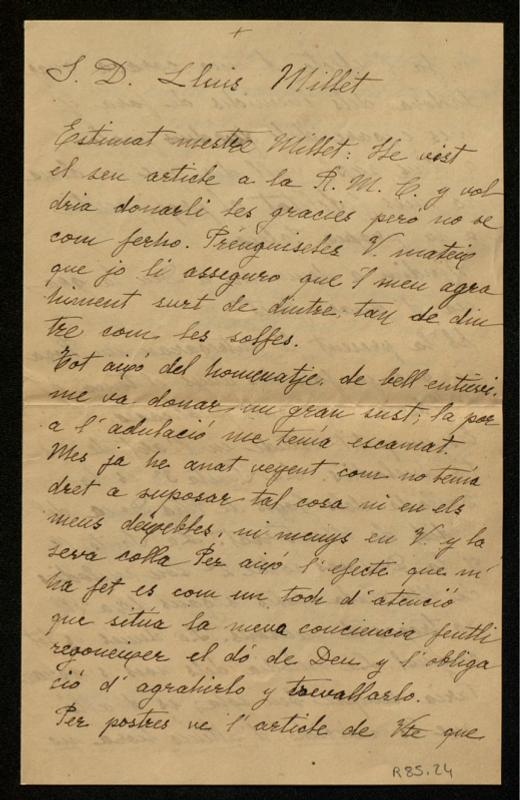 +
S. D. Lluis Millet
Estimat mestre Millet: He vist
el seu article a la R. M. C. y vol
dria donarli les gracies però no se
com ferho. Prenguiseles V. mateix
que jo li asseguro que 'l meu agra
himent surt de dintre, tan de din
tre com les solfes.
Tot aixó del homenatje, de bell entuvi.
me va donar un gran sust; la por
a l'adulació me tenia escamat.
Mes ja he anat veyent com no tenia
dret a suposar tal cosa ni en els
meus deixebles, ni menys en V. y la
seva colla Per aixó l'efecte que m'
ha fet es com un toch d'atenció
que situa la meva conciencia fentli
regoneixer el dó de Deu y l'obliga
ció d'agrahirlo y trevallarlo.
Per postres ve l'article de Vte que
R85.24